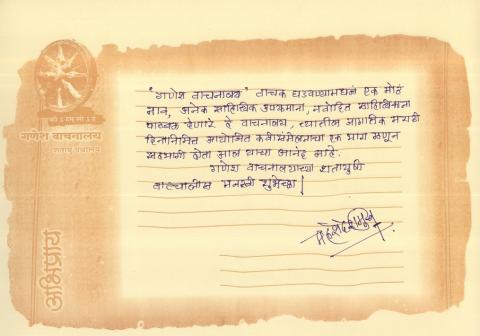 गणेश वाचनालय
शताब्दी ग्रंथालय
अभिप्राय
"गणेश वाचनालय" वाचक घडवण्यामधलं एक मोठं
नाव, अनेक साहित्यिक उपक्रमांना, नवोदित साहित्यिकांना
पाठबळ देणारे हे वाचनालय, येथील जागतिक मराठी
दिनानिमित्त आयोजित कवीसंमेलनाचा एक भाग म्हणून
सहभागी होता आलं याचा आनंद आहे.
गणेश वाचनालयाच्या शतायुषी
वाटचालीस मनस्वी शुभेच्छा!